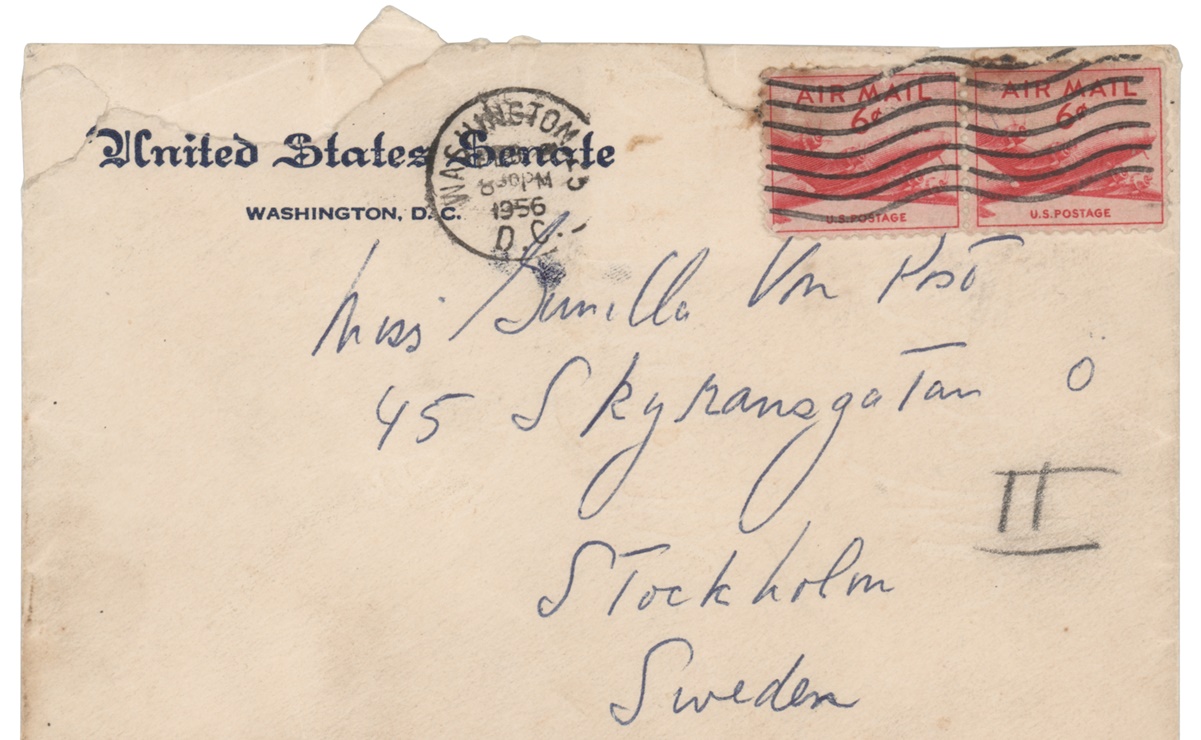 United States Senate
WASHINGTON, D.C.
WASHINGTON
8 30 PM
1956
D.C.
AIR MAIL
6¢
U.S.POSTAGE
AIR MAIL
6¢
U.S.POSTAGE
Miss Gunilla Von Post
45 Skyransgatan Ö
II
Stockholm
Sweden